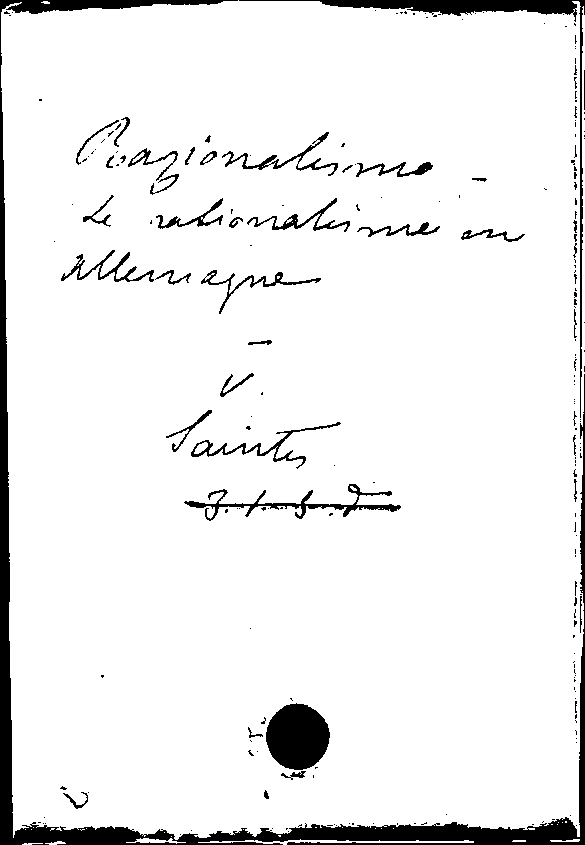 Razionalismo -
Le rationalisme en
Allemagne
-
V.
Saintes
3. 1. 5. 7